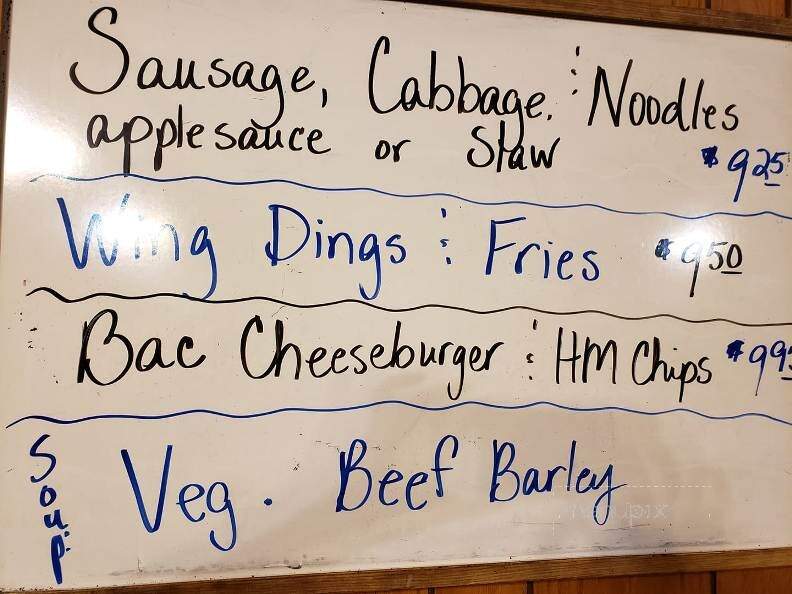 Sausage, Cabbage, & Noodles
applesauce or Slaw $9.25
Wing Dings & Fries $9.50
Bac Cheeseburger & HM Chips $9.95
Soup: Veg. Beef Barley